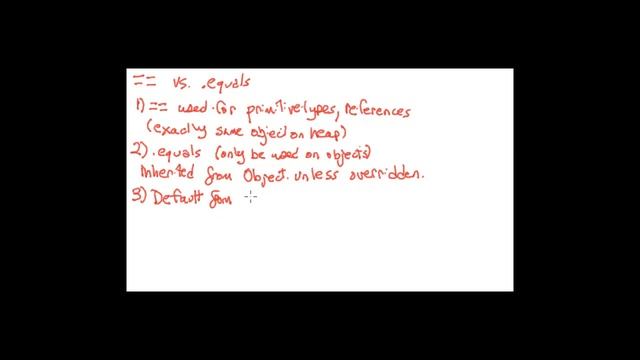 == vs. .equals
1) == used for primitive types, references
(exactly same object on heap)
2) .equals (only be used on objects)
Inherited from Object unless overridden.
3) Default from